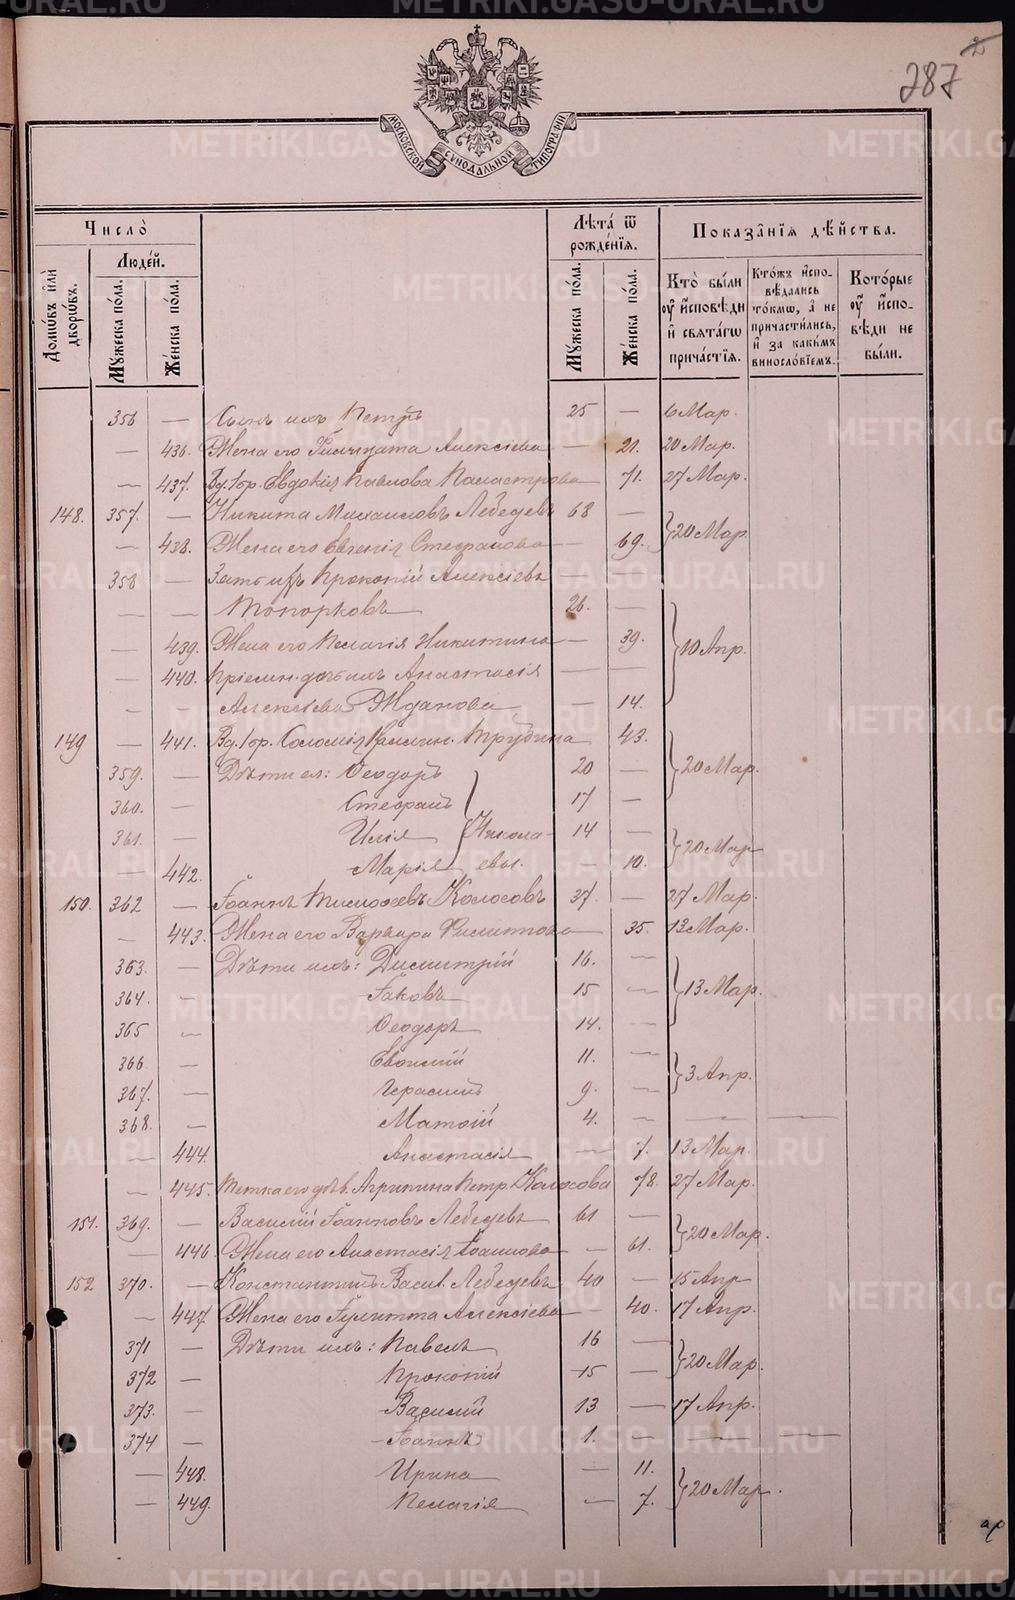 287
МОСКОВСКОЙ СѴНОДАЛЬНОЙ ТИПОГРАФІИ
Число̀
Домѡвъ и҆лѝ дворѡвъ.
Людей.
Мꙋжеска по́ла.
Же́нска по́ла.
Лѣта̀ ѿ рожде́нїѧ.
Мꙋжеска по́ла.
Же́нска по́ла.
Показа̑нїѧ дѣ́йства.
Кто̀ бы́ли ᲂу҆ и҆́сповѣди и҆ свѧта́гѡ прича́стїѧ.
Кто́жъ и҆сповѣ́дались то́кмѡ, а҆ не причасти́лись, и҆ за каки́мъ виносло́вїемъ.
Кото́рые ᲂу҆ и҆́сповѣди не бы́ли.
356 — Сынъ ихъ Петръ 25 — 6 Мар.
— 436. Жена его Алексіева — 21. 20 Мар.
— 437. Евдокія Павлова — 71. 27 Мар.
148. 357. — Никита Михаиловъ Лебедевъ 68 — 20 Мар.
— 438. Жена его Евгенія Стефанова — 69.
358 — Зять ихъ Прокопій Алексіевъ —
— — Топорковъ 26. —
— 439. Жена его Пелагія Никитина — 39. 10 Апр.
— 440. Пріемн. дочь ихъ Анастасія — —
— — Алексіева Жданова — 14.
149 — 441. Вд. Соломія Трубина 43. 20 Мар.
359. — Дѣти ея: Ѳеодоръ 20 —
360. — Стефанъ 17 —
361. — Илія Никола- 14 — 20 Мар
— 442. Марія евы. — 10.
150. 362 — Іоаннъ Колосовъ 37. — 27 Мар.
— 443. Жена его Варвара Филиппова 35. 13 Мар.
363. — Дѣти ихъ: Димитрій 16. —
364. — Іаковъ 15 — 13 Мар.
365 — Ѳеодоръ 14. —
366 — Евѳимій 11. — 3 Апр.
367. — Герасимъ 9. —
368. — Матѳій 4. — — —
— 444. Анастасія — 7. 13 Мар.
— 445. Тетка его дѣв. Агрипина Петр. Колосова 78. 27 Мар.
151. 369. — Василій Іоанновъ Лебедевъ 61 — 20 Мар.
— 446. Жена его Анастасія Іоаннова — 61.
152 370. — Константинъ Васил. Лебедевъ 40 — 15 Апр
— 447. Жена его Іулитта Алексіева — 40. 17 Апр.
371 — Дѣти ихъ: Павелъ 16 —
372 — Прокопій 15 — 20 Мар.
373. — Василій 13 — 17 Апр.
374 — Іоаннъ 1. — — —
— 448. Ирина — 11.
— 449. Пелагія — 7. 20 Мар.
METRIKI.GASO-URAL.RU